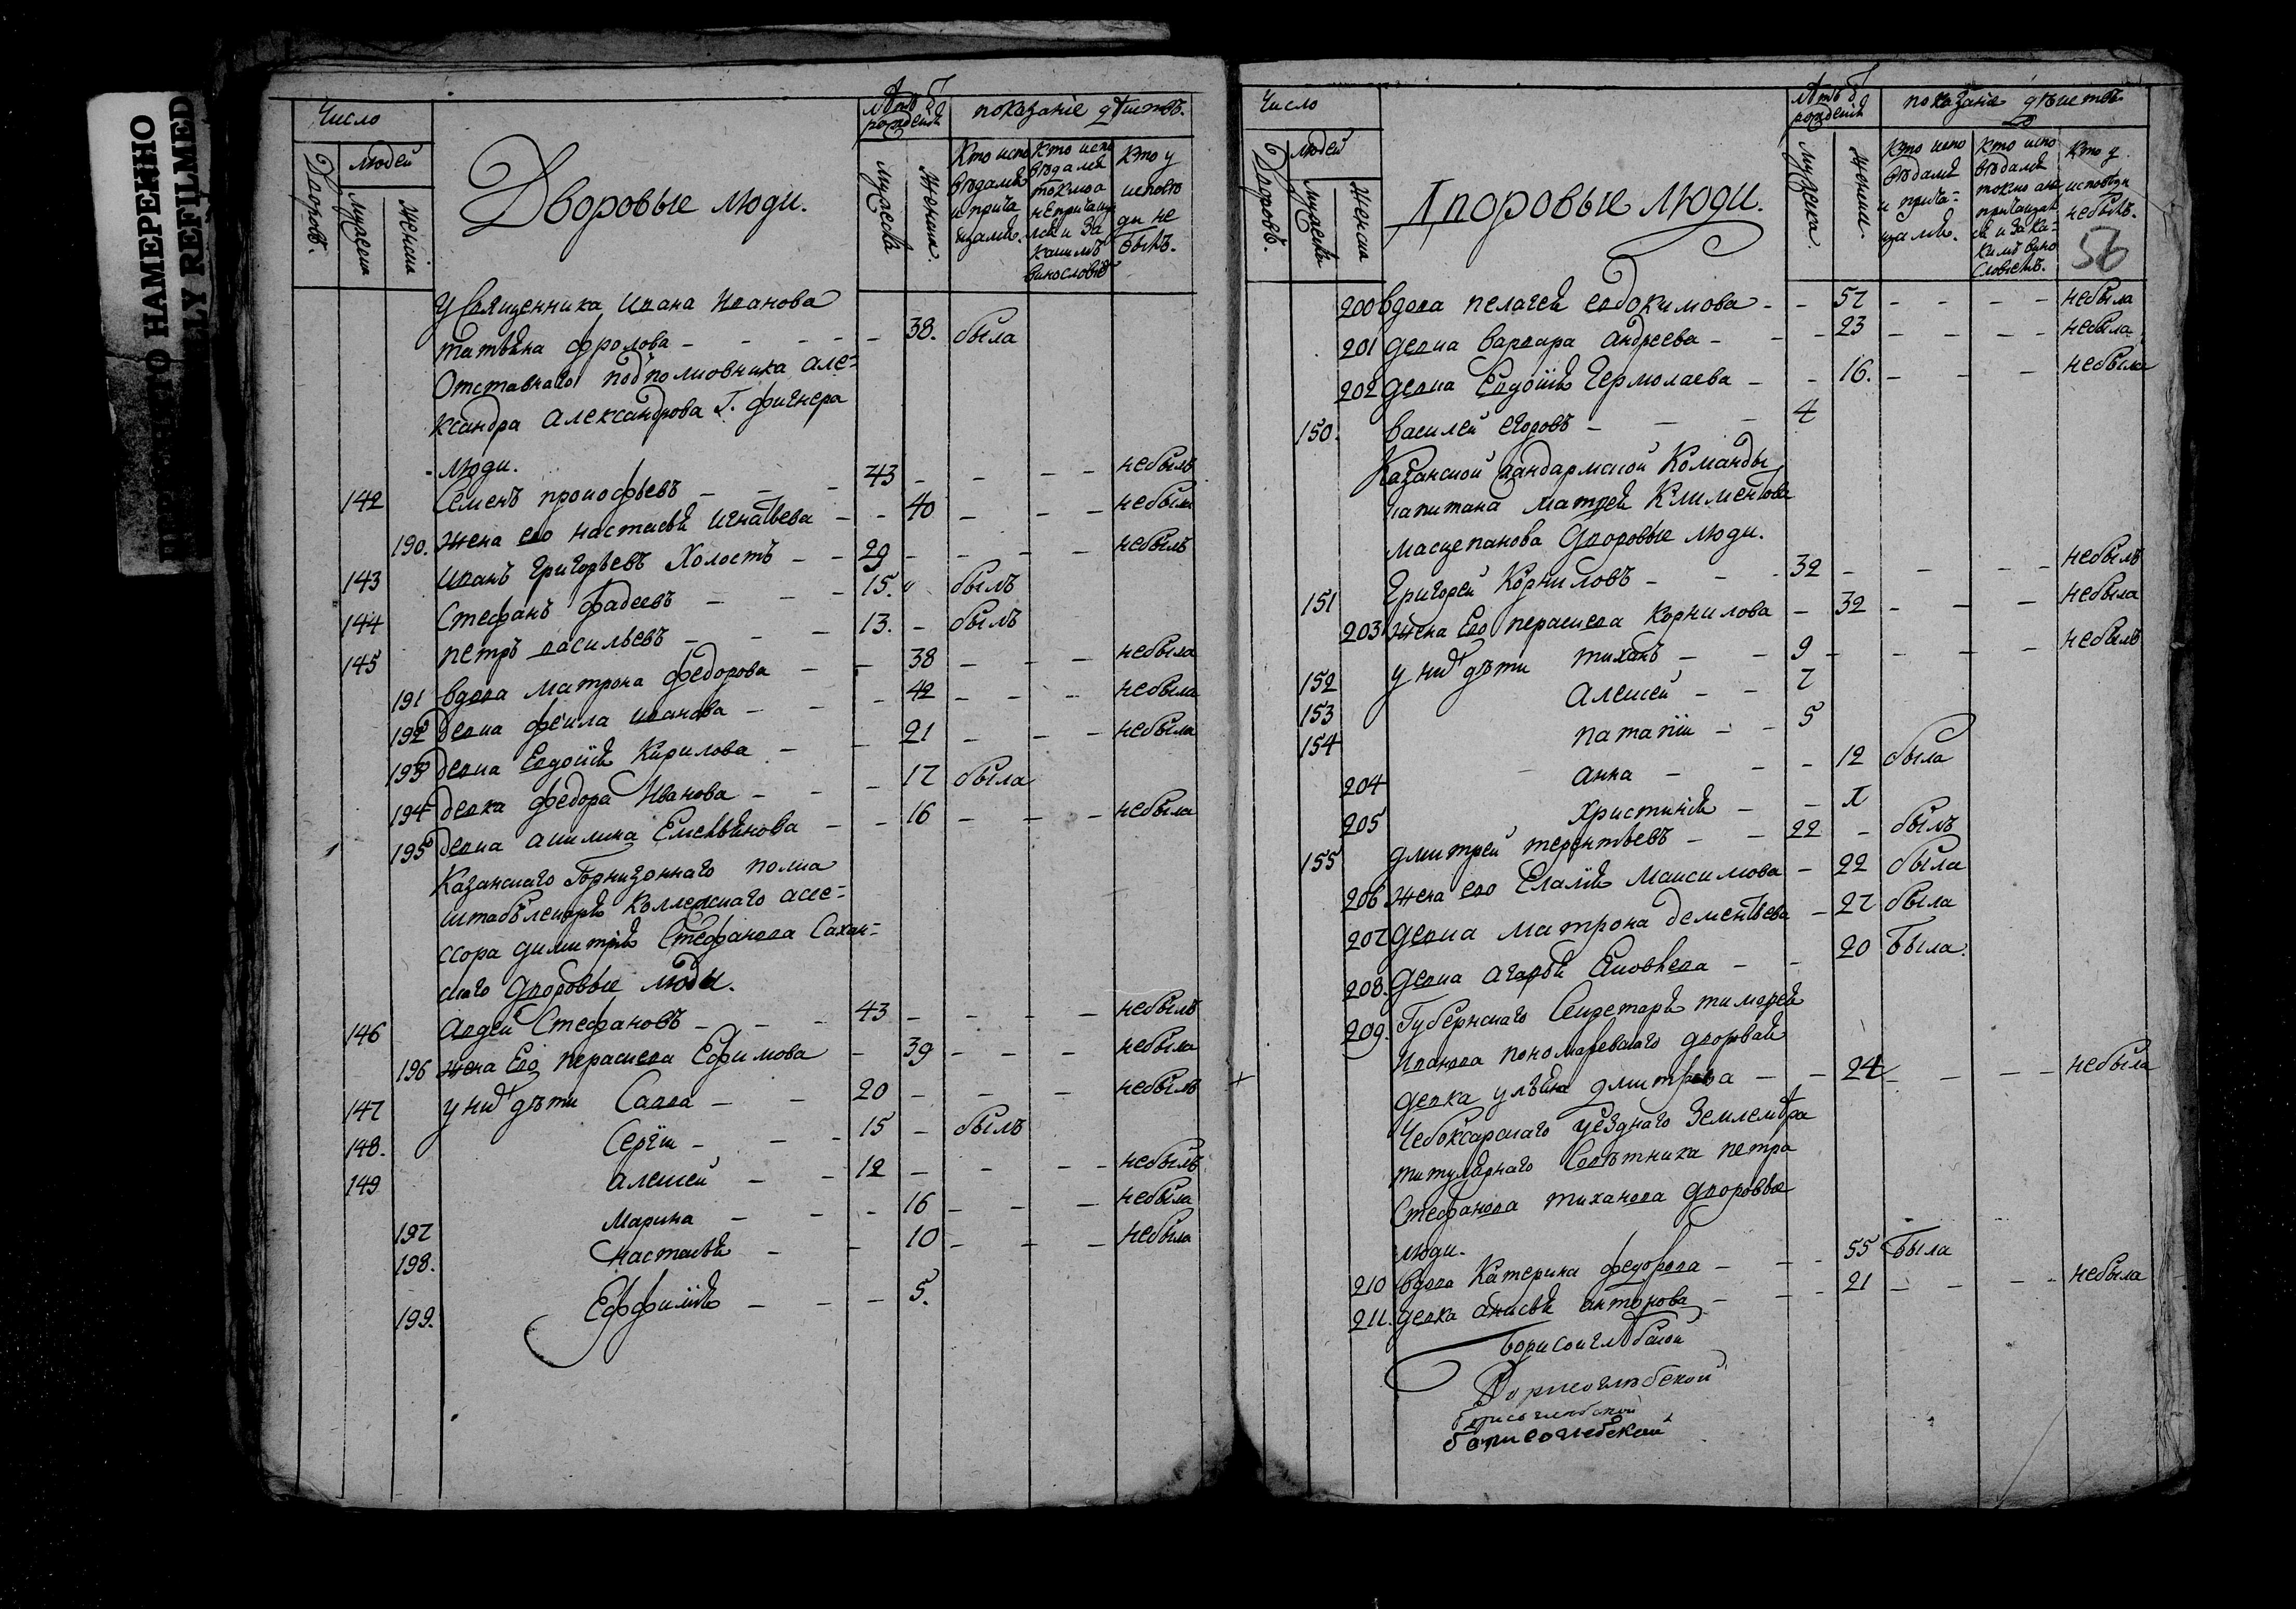 Число
людей
Дворовъ.
Мужеска
Женска
Дворовые люди.
Лѣтъ от рождения
Мужеска
Женска.
показаніе дѣйствъ.
Кто испо
вѣдался
и прича
щался.
Кто испо
вѣдался
токмо а
не причащал
ся и за
какимъ
винословіем
Кто у
исповѣ
ди не
былъ.
У Священника Ивана Иванова
татьяна фролова - - - - 38. была
Отставнаго подполковника Але-
ксандра Александрова Г. Фигнера
люди.
142 Семенъ прокофьевъ - - - 43 - - - - небылъ
190. жена его настасья Игнатьева - - 40 - - - небыла
143 Иванъ Григорьевъ Холостъ - - 29 - - - - небылъ
144 Стефанъ фадеевъ - - - 15. былъ
145 петръ васильевъ - - - 13. - былъ
191 вдова матрона федорова - - 38 - - - небыла
192 девка фекла иванова - - - 42 - - - небыла
193 девка Евдокія Кирилова - - 21 - - - небыла
194 девка федора Иванова - - - 17 была
195 девка акилина Емельянова - - 16 - - - небыла
Казанскаго Горнизоннаго полка
штабълекаря Коллежскаго асе-
ссора димитрія Стефанова Сахан-
скаго дворовые люди.
146 Авдей Стефановъ - - - 43 - - - - небылъ
196 жена Его параскева Ефимова - 39 - - - небыла
147 у них дѣти Савва - - 20 - - - небылъ
148. Сергѣй - - - 15 - былъ
149 алексей - - 12 - - - - небылъ
197 Марина - - - 16 - - - небыла
198. настасья - - 10 - - - небыла
199. Еффимія - - - 5.
Число
людей
Дворовъ.
Мужеска
Женска
Дворовые люди.
Лѣтъ от рождения
Мужеска.
Женска.
показаніе дѣйствъ
Кто испо
вѣдался
и прича-
щался.
Кто испо
вѣдался
токмо а не
причащал
ся и за ка-
кимъ вино
словіемъ.
Кто у
исповѣди
небылъ.
56
200 вдова пелагея евдокимова - - 57 - - - - небыла
201 девка варвара андреева - - - 23 - - - - небыла
202 девка Евдокія Ермолаева - - 16. - - - небыла
150. василей егоровъ - - - 4
Казанской жандармской Команды
капитана матфея Климентова
масцепанова дворовые люди.
151 Григорей Корниловъ - - - 32 - - - - небылъ
203 жена Его параскева Корнилова - 32 - - - небыла
152 у них дѣти тихонъ - - 9 - - - - небылъ
153 алексей - - 7
154 - - 5
204 анна - - - 12 была
205 христинія - -
155 дмитрей терентьевъ - - 22 - былъ
206 жена его Максимова - 22 была
207 девка матрона дементьева - 27 была
208. девка агафья Яковлева - - 20 была.
209. Губернскаго Секретаря тимофея
Иванова пономаревскаго дворовая
девка ульяна дмитрева - - 24 - - - - небыла
Чебоксарскаго уѣзднаго Землемѣра
титулярнаго Совѣтника петра
Стефанова тиханова дворовые
люди.
210 вдова Катерина федорова - - - 55 была
211. девка анисья антонова - - - 21 - - - - небыла
Борисоглѣбской
Борисоглѣбской
борисоглебской
борисоглебской
НАМЕРЕННО
REFILMED